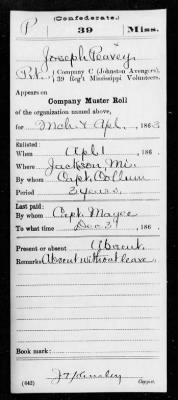 (Confederate.)
P 39 Miss.
Joseph Peavey
Pvt., Company C (Johnston Avengers),
39 Reg't Mississippi Volunteers.
Appears on
Company Muster Roll
of the organization named above,
for Mch & Apl, 1863
Enlisted:
When Apl 1, 186
Where Jackson Mi
By whom Capt Collum
Period 3 years
Last paid:
By whom Capt Magee
To what time Dec 31, 186
Present or absent Absent
Remarks: Absent without leave
Book mark:
(642) Copyist.